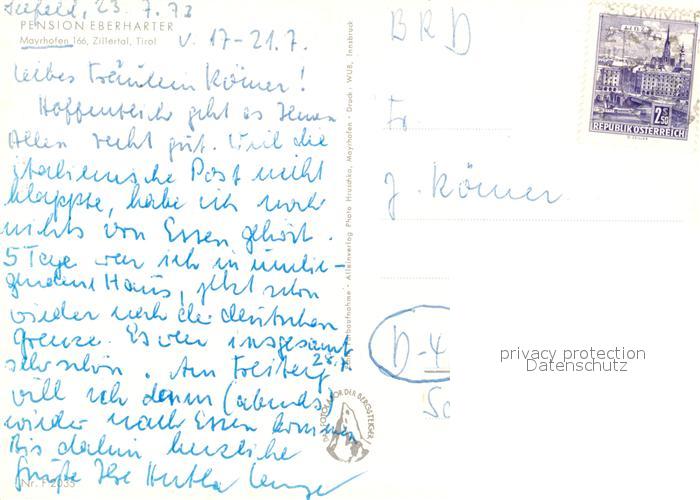 Seefeld, 23. 7. 73
PENSION EBERHARTER
Mayrhofen 166, Zillertal, Tirol
v. 17-21.7.
Liebes Fräulein Körner!
Hoffentlich geht es Ihnen
Allen recht gut. Weil die
italienische Post nicht
klappte, habe ich noch
nichts von Essen gehört.
5 Tage war ich in umlie-
gendem Haus, jetzt schon
wieder nach der deutschen
Grenze. Es war insgesamt
sehr schön. Am Freitag
28.7.
will ich dann (abends)
wieder nach Essen kommen
Bis dahin herzliche
Grüße Ihre
Nr. F 2035
Alleinverlag Photo Hruschka, Mayrhofen - Druck: WUB, Innsbruck
DER BERGSTEIGER
BRD
Fr
J. Körner
D-4
LINZ
2S50
REPUBLIK ÖSTERREICH
privacy protection
Datenschutz